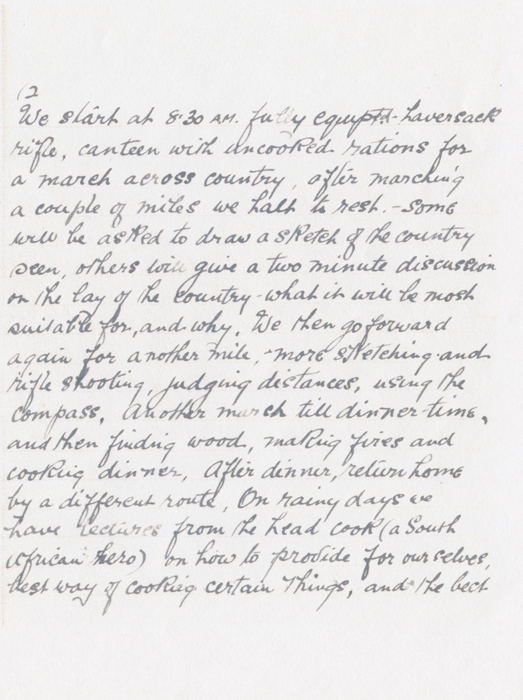 (2
We start at 8.30 AM. fully equipted - haversack
rifle, canteen with uncooked rations for
a march across country, after marching
a couple of miles we halt to rest. - Some
will be asked to draw a sketch of the country
seen, others will give a two minute discussion
on the lay of the country - what it will be most
suitable for, and why. We then go forward
again for another mile, - more sketching and
rifle shooting, judging distances, using the
compass. Another march till dinner-time,
and then finding wood, making fires and
cooking dinner. After dinner, return home
by a different route. On rainy days we
have lectures from the head cook (a South
African hero) on how to provide for ourselves,
best way of cooking certain things, and the best